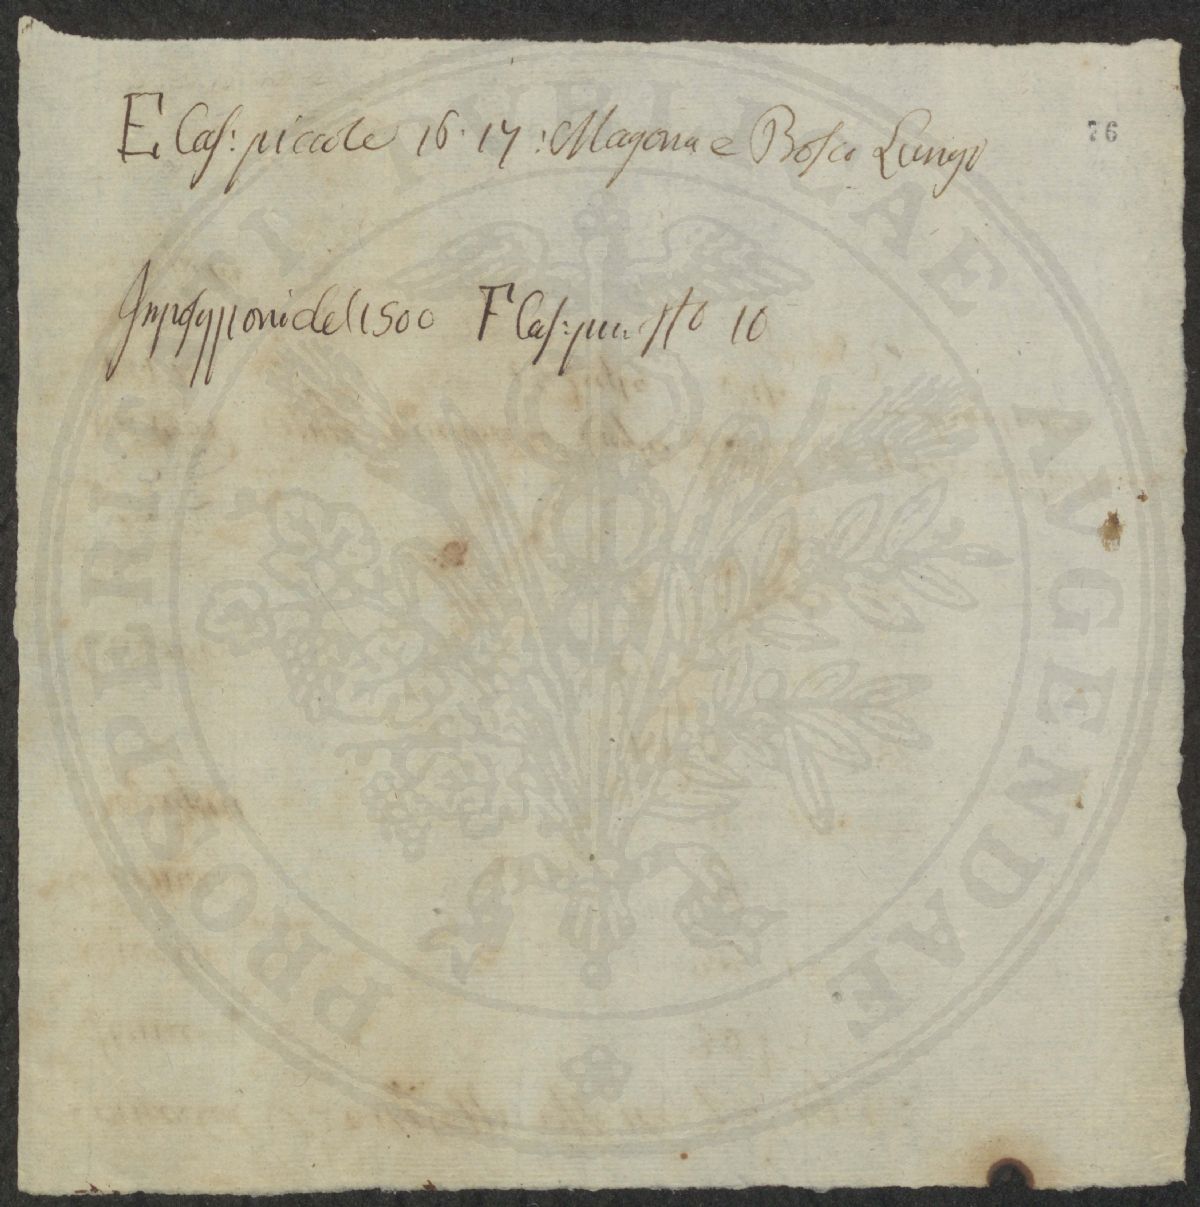 E Cas: piccole 16. 17: Magona e Bosco Lungo
76
Impressioni del 1500 F Cas: 10
PROSPERITATI PVBLICAE AVGENDAE